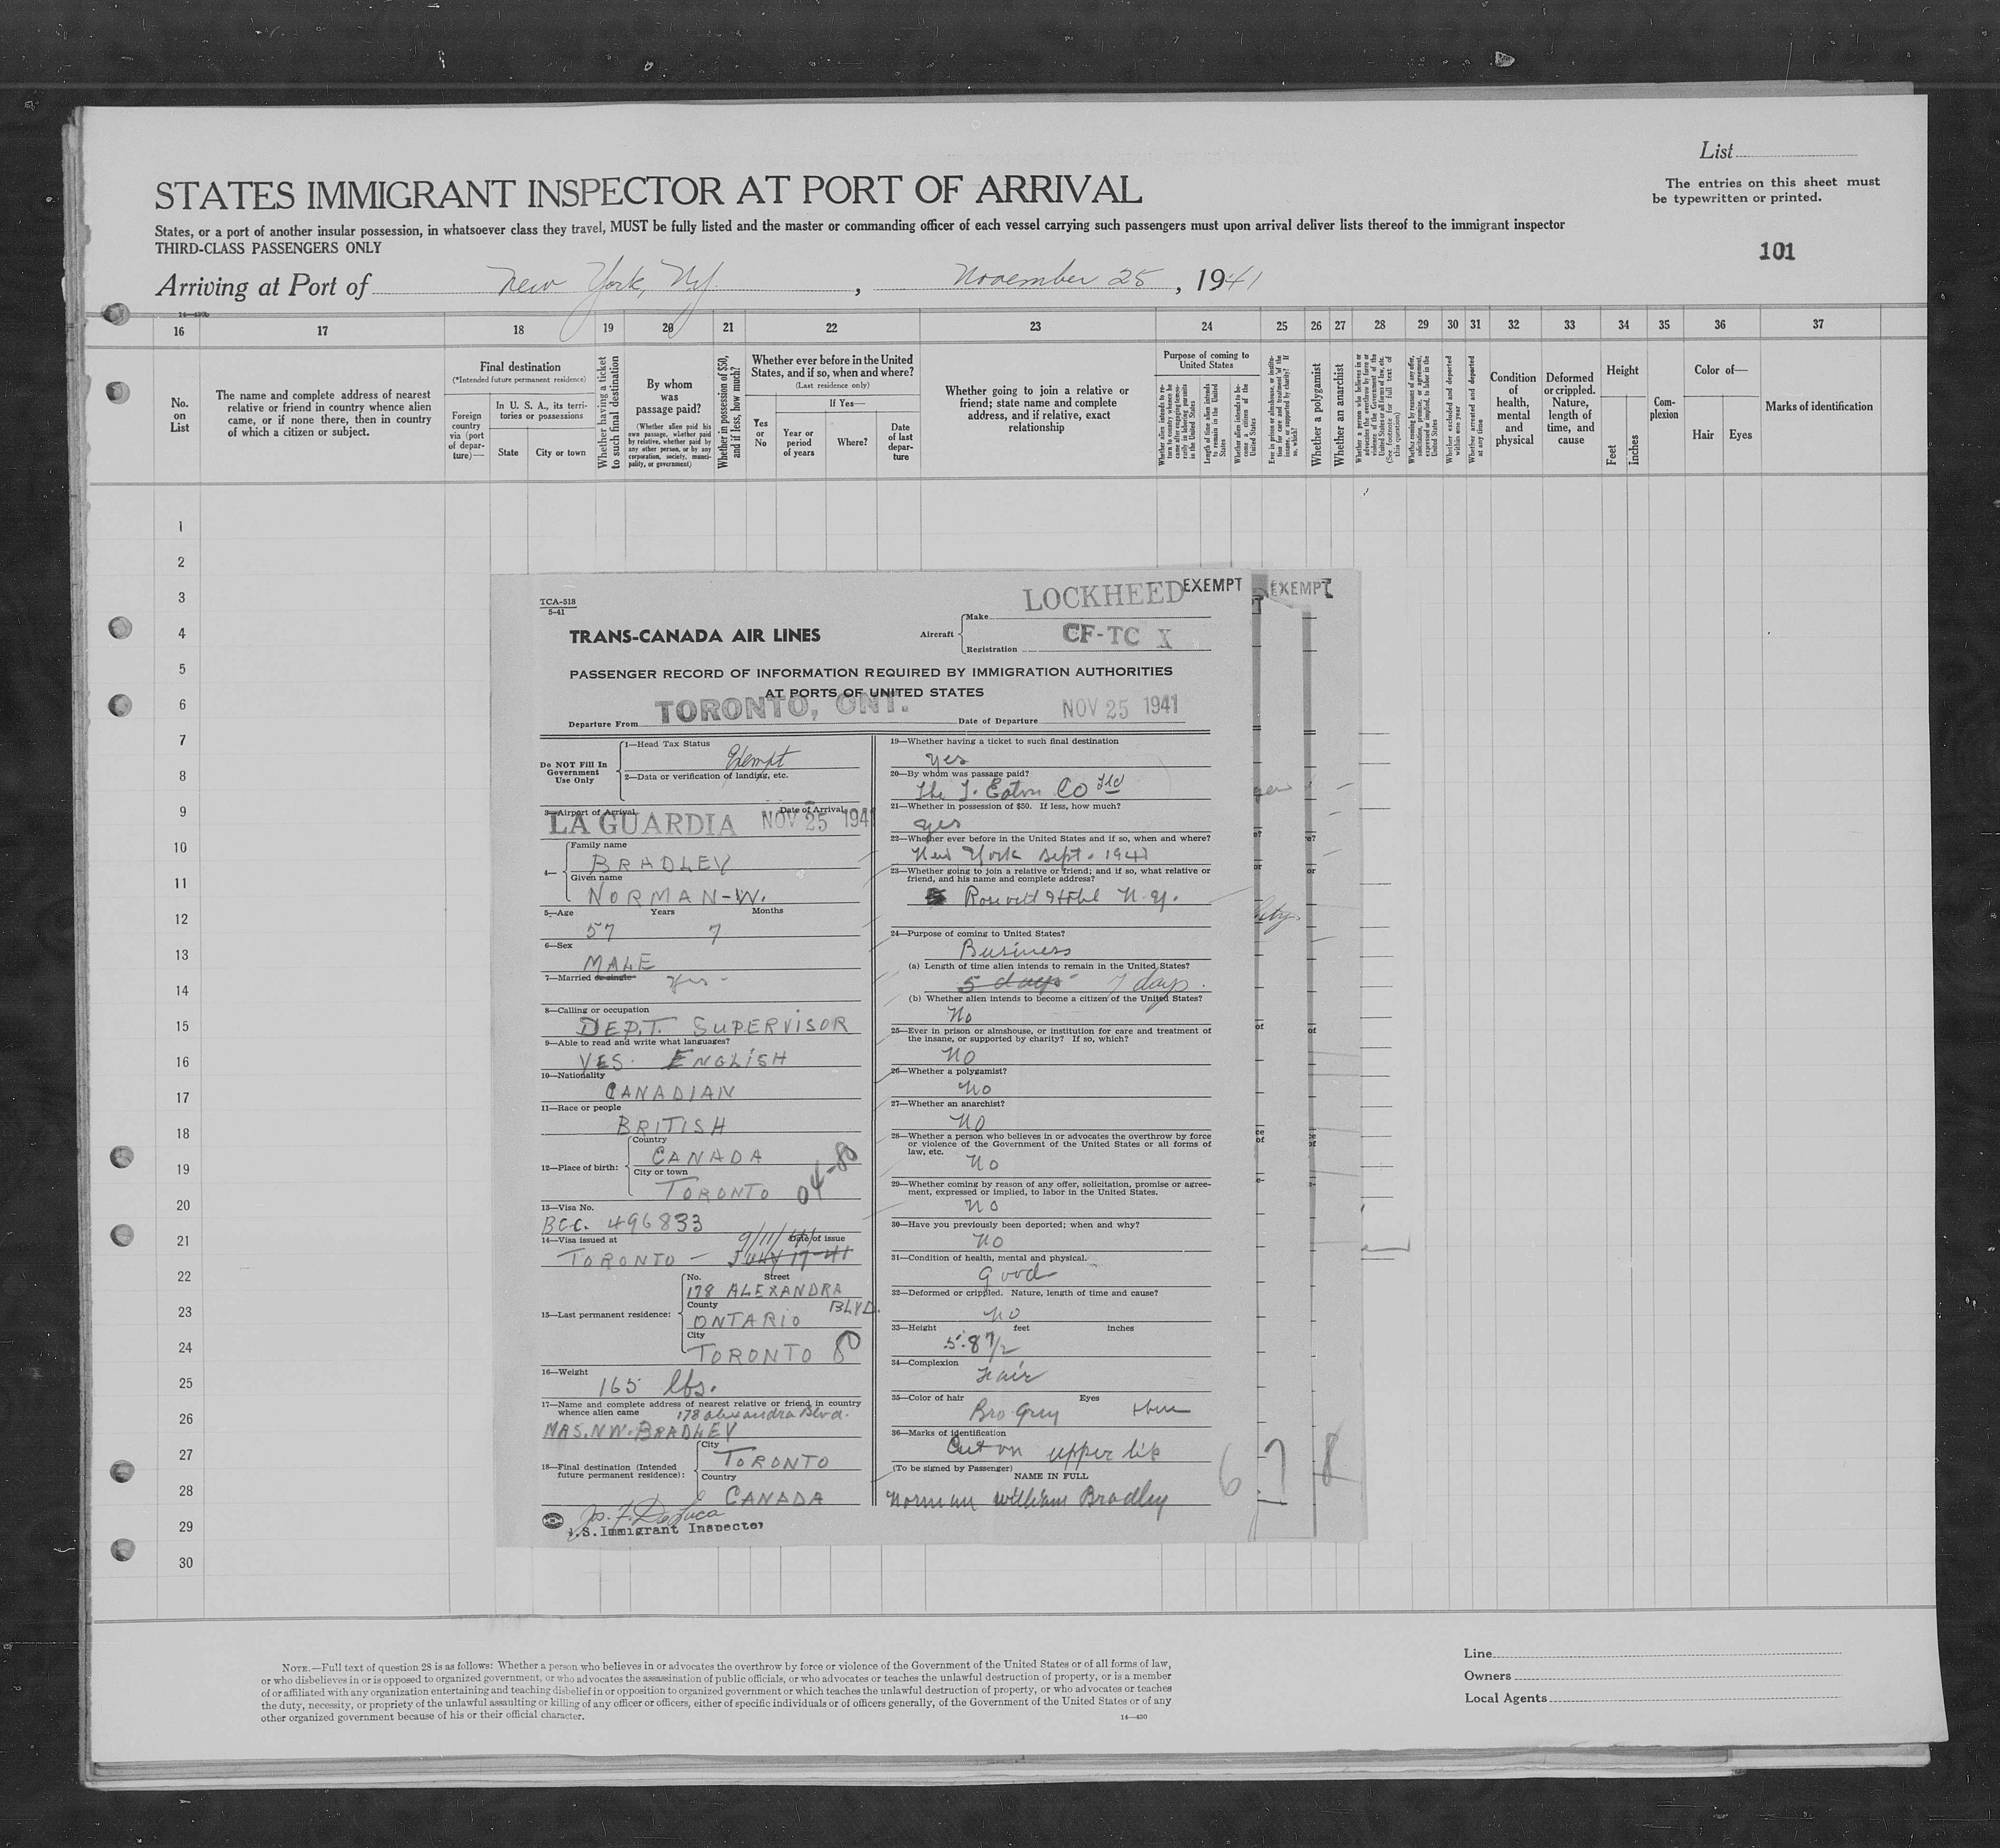 List
STATES IMMIGRANT INSPECTOR AT PORT OF ARRIVAL
The entries on this sheet must
be typewritten or printed.
States, or a port of another insular possession, in whatsoever class they travel, MUST be fully listed and the master or commanding officer of each vessel carrying such passengers must upon arrival deliver lists thereof to the immigrant inspector
THIRD-CLASS PASSENGERS ONLY
101
Arriving at Port of New York, NY , November 25 , 1941
16 17 18 19 20 21 22 23 24 25 26 27 28 29 30 31 32 33 34 35 36 37
No.
on
List
The name and complete address of nearest
relative or friend in country whence alien
came, or if none there, then in country
of which a citizen or subject.
Final destination
(*Intended future permanent residence)
Foreign
country
via (port
of depar-
ture)—
In U. S. A., its terri-
tories or possessions
State
City or town
Whether having a ticket
to such final destination
By whom
was
passage paid?
(Whether alien paid his
own passage, whether paid
by relative, whether paid by
any other person, or by any
corporation, society, munici-
pality, or government)
Whether in possession of $50,
and if less, how much?
Whether ever before in the United
States, and if so, when and where?
(Last residence only)
Yes
or
No
If Yes—
Year or
period
of years
Where?
Date
of last
depar-
ture
Whether going to join a relative or
friend; state name and complete
address, and if relative, exact
relationship
Purpose of coming to
United States
Length of time alien intends
to remain in the United
States
Whether alien intends to be-
come a citizen of the
United States
Whether a polygamist
Whether an anarchist
Whether excluded and deported
within one year
Whether arrested and deported
at any time
Condition
of
health,
mental
and
physical
Deformed
or crippled.
Nature,
length of
time, and
cause
Height
Feet
Inches
Com-
plexion
Color of—
Hair
Eyes
Marks of identification
1
2
3
4
5
6
7
8
9
10
11
12
13
14
15
16
17
18
19
20
21
22
23
24
25
26
27
28
29
30
TCA-518
5-41
LOCKHEED EXEMPT
EXEMPT
TRANS-CANADA AIR LINES
Aircraft
Make
CF-TC X
Registration
PASSENGER RECORD OF INFORMATION REQUIRED BY IMMIGRATION AUTHORITIES
AT PORTS OF UNITED STATES
Departure From TORONTO, ONT. Date of Departure NOV 25 1941
Do NOT Fill In
Government
Use Only
1—Head Tax Status
Exempt
2—Data or verification of landing, etc.
3—Airport of Arrival Date of Arrival
LA GUARDIA NOV 25 1941
4—
Family name
BRADLEY
Given name
NORMAN-W.
5—Age Years Months
57 7
6—Sex
MALE
7—Married or single Yes-
8—Calling or occupation
DEPT. SUPERVISOR
9—Able to read and write what languages?
YES. ENGLISH
10—Nationality
CANADIAN
11—Race or people
BRITISH
12—Place of birth:
Country
CANADA
City or town
TORONTO
04-80
13—Visa No.
BCC. 496833
14—Visa issued at Date of issue
9/11/41
TORONTO - JULY 17-41
15—Last permanent residence:
No. Street
178 ALEXANDRA
County BLVD.
ONTARIO
City
TORONTO
16—Weight
165 lbs.
17—Name and complete address of nearest relative or friend in country
whence alien came 178 Alexandra Blvd.
MRS. N.W. BRADLEY
18—Final destination (Intended
future permanent residence):
City
TORONTO
Country
CANADA
Jos. F. DeLuca
U.S. Immigrant Inspector
19—Whether having a ticket to such final destination
Yes
20—By whom was passage paid?
The T. Eaton Co Ltd
21—Whether in possession of $50. If less, how much?
yes
22—Whether ever before in the United States and if so, when and where?
New York Sept. 1941
23—Whether going to join a relative or friend; and if so, what relative or
friend, and his name and complete address?
Rosevelt Hotel N.Y.
24—Purpose of coming to United States?
Business
(a) Length of time alien intends to remain in the United States?
5 days 7 days.
(b) Whether alien intends to become a citizen of the United States?
No
25—Ever in prison or almshouse, or institution for care and treatment of
the insane, or supported by charity? If so, which?
No
26—Whether a polygamist?
No
27—Whether an anarchist?
No
28—Whether a person who believes in or advocates the overthrow by force
or violence of the Government of the United States or all forms of
law, etc.
No
29—Whether coming by reason of any offer, solicitation, promise or agree-
ment, expressed or implied, to labor in the United States.
No
30—Have you previously been deported; when and why?
No
31—Condition of health, mental and physical.
Good
32—Deformed or crippled. Nature, length of time and cause?
No
33—Height feet inches
34—Complexion
Fair
35—Color of hair Eyes
Bro Grey
36—Marks of identification
Cut on upper lip
(To be signed by Passenger)
NAME IN FULL
Norman William Bradley
6 7 8
NOTE.—Full text of question 28 is as follows: Whether a person who believes in or advocates the overthrow by force or violence of the Government of the United States or of all forms of law,
or who disbelieves in or is opposed to organized government, or who advocates the assassination of public officials, or who advocates or teaches the unlawful destruction of property, or is a member
of or affiliated with any organization entertaining and teaching disbelief in or opposition to organized government or which teaches the unlawful destruction of property, or who advocates or teaches
the duty, necessity, or propriety of the unlawful assaulting or killing of any officer or officers, either of specific individuals or of officers generally, of the Government of the United States or of any
other organized government because of his or their official character.
14—430
Line
Owners
Local Agents